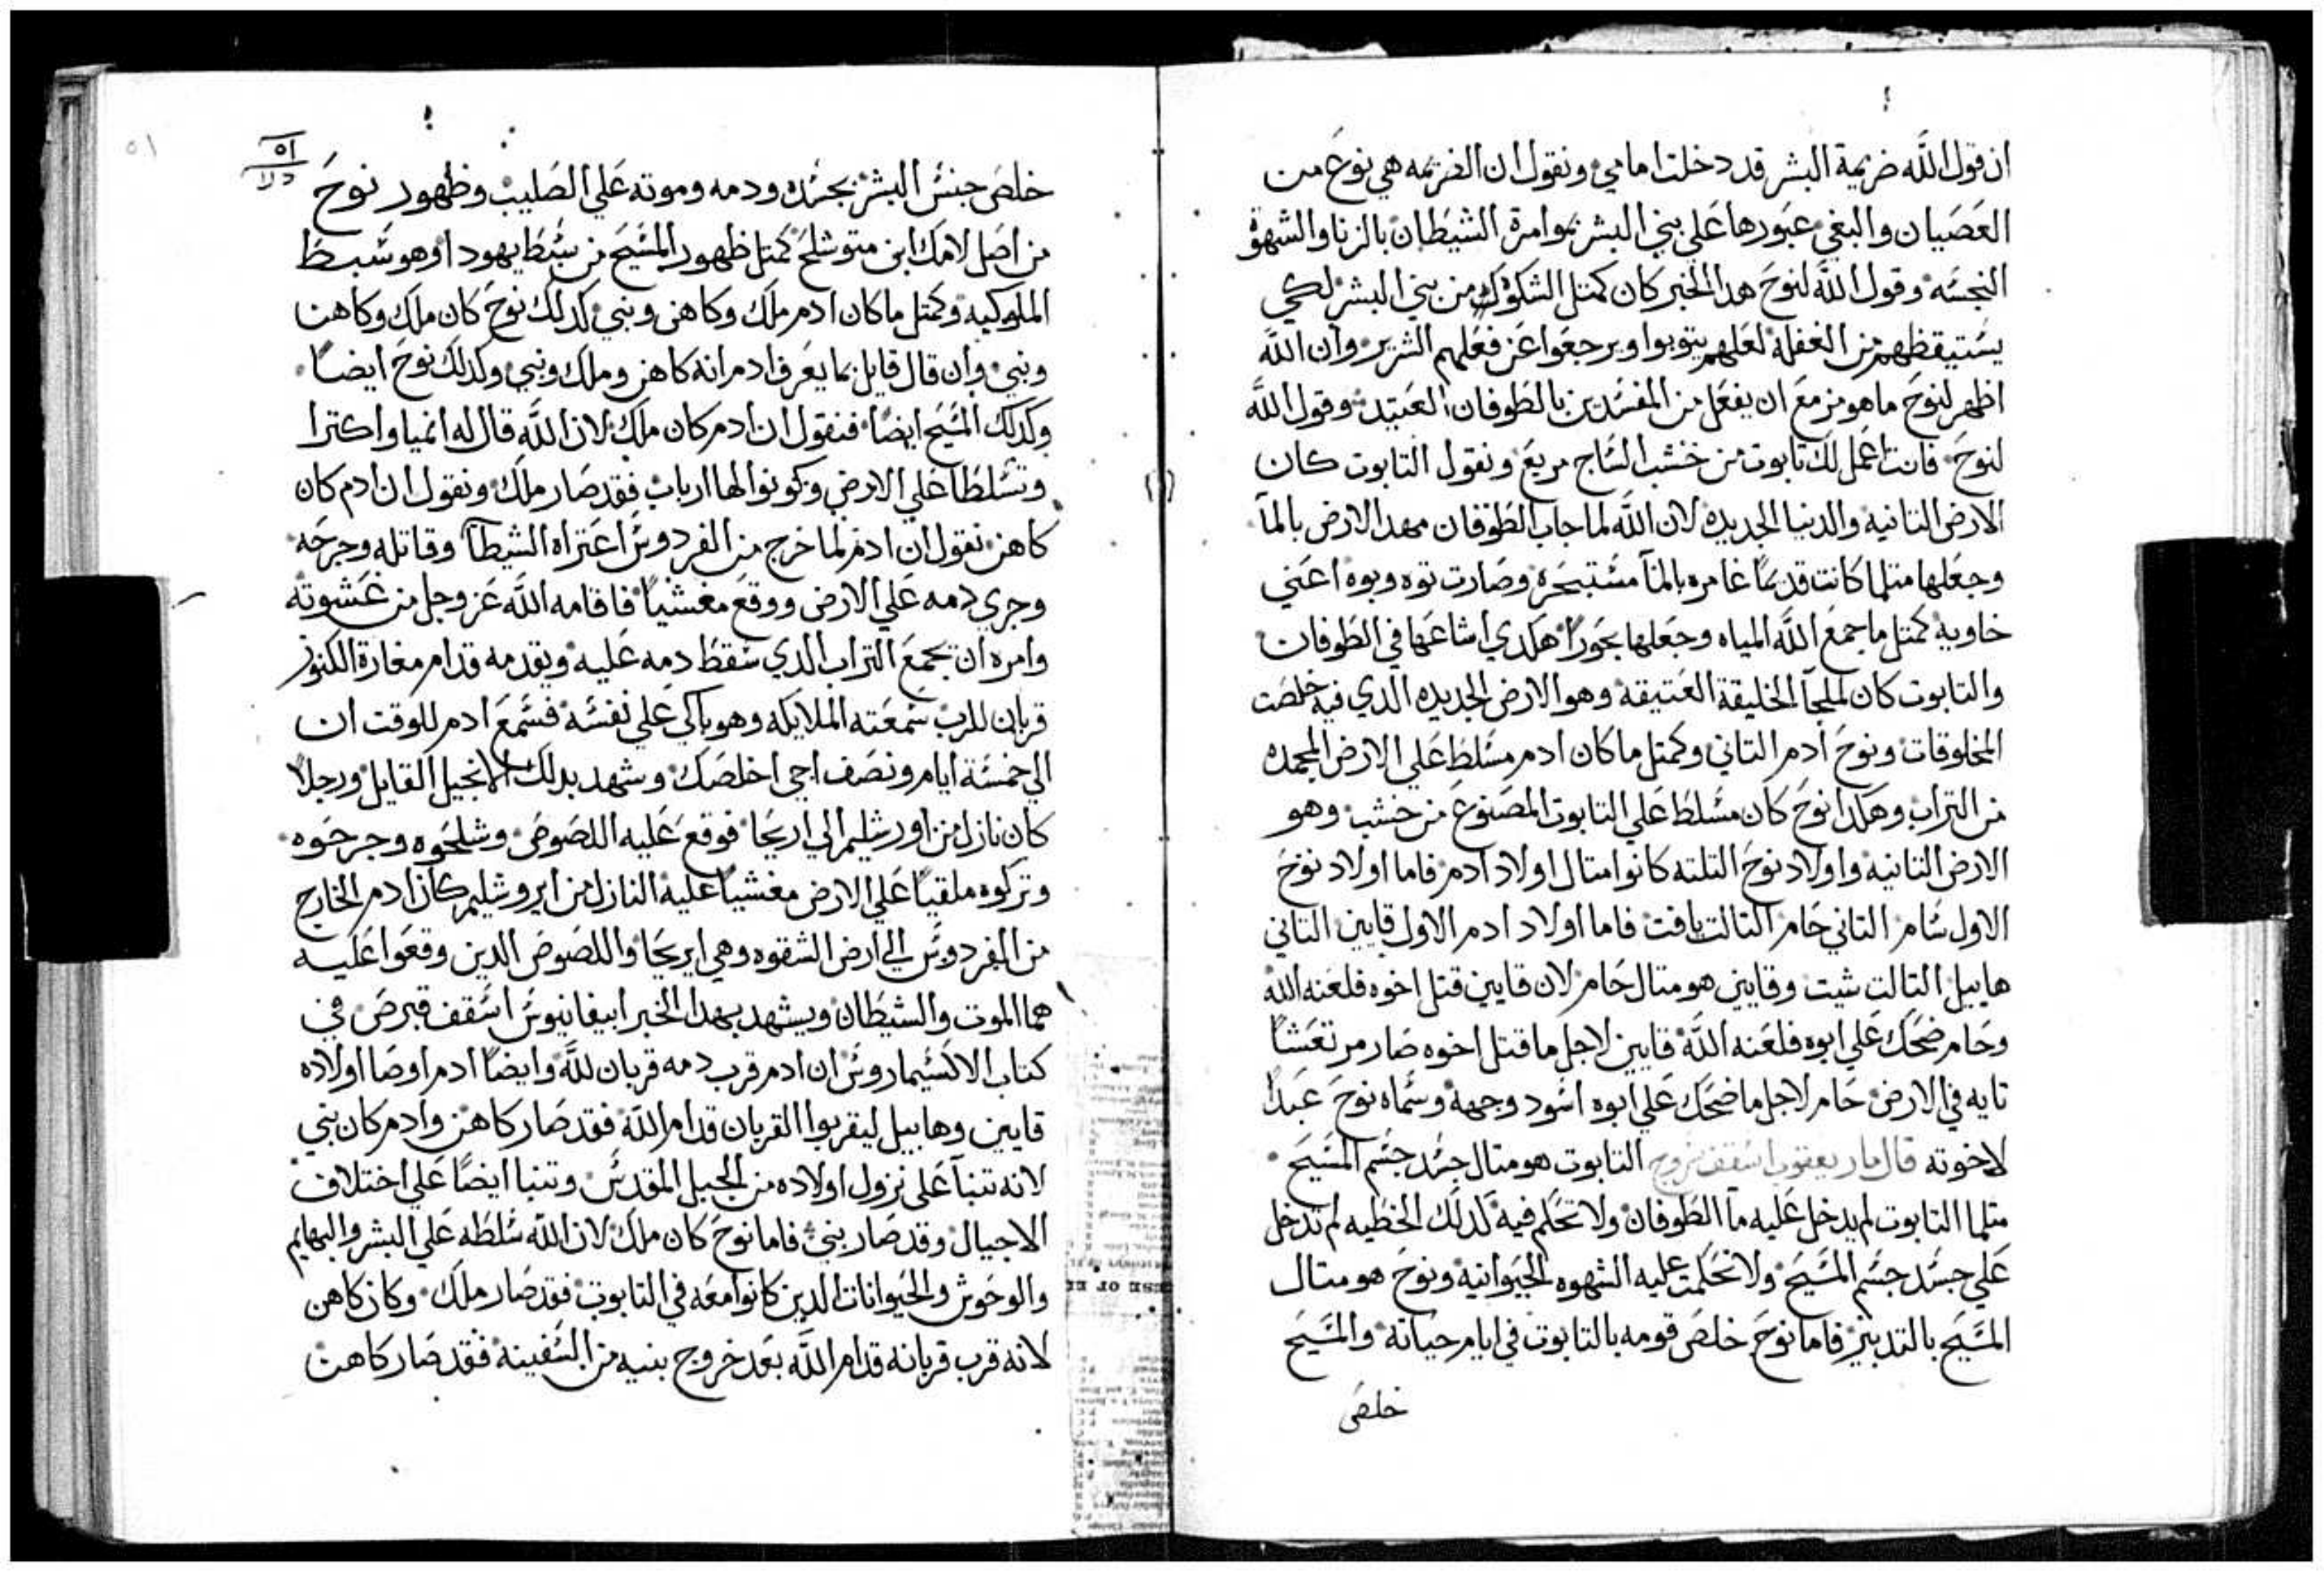 ان قول الله ضريمة البشر قد دخلت امامي ونقول ان الضريمه هي نوع من
العصيان والبغي عبورها علي بني البشر بموامرة الشيطان بالزنا والشهوة
النجسه وقول الله لنوح هدا الخبر كان كمتل الشكوك من بني البشر لكي
يستيقظهم من الغفلة لعلهم يتوبوا ويرجعوا عن فعلهم الشرير وان الله
اظهر لنوح ما هو مزمع ان يفعل من المفسدين بالطوفان العتيد وقول الله
لنوح فانت اعمل لك تابوت من خشب الساج مربع ونقول التابوت كان
الارض التانيه والدنيا الجديده لان الله لما جاب الطوفان مهد الارض بالمآ
وجعلها متلما كانت قديما غامره بالمآ مستبحرة وصارت توه وبوه اعني
خاويه كمتل ما جمع الله المياه وجعلها بحورا هكدي اشاعها في الطوفان
والتابوت كان لملجآ الخليقة العتيقه وهو الارض الجديده الدي فيه خلصت
المخلوقات ونوح ادم التاني وكمتل ما كان ادم مسلط علي الارض المجمده
من التراب وهكدا نوح كان مسلط علي التابوت المصنوع من خشب وهو
الارض التانيه واولاد نوح التلته كانوا امتال اولاد ادم فاما اولاد نوح
الاول سام التاني حام التالت يافت فاما اولاد ادم الاول قايين التاني
هابيل التالت شيت وقايين هو متال حام لان قايين قتل اخوه فلعنه الله
وحام ضحك علي ابوه فلعنه الله قايين لاجل ما قتل اخوه صار مرتعشا
تايه في الارض حام لاجل ما ضحك علي ابوه اسود وجهه وسماه نوح عبدا
لاخوته قال مار يعقوب اسقف سروج التابوت هو متال جسد جسم المسيح
متلما التابوت لم يدخل عليه ما الطوفان ولا تحكم فيه كدلك الخطيه لم تدخل
علي جسد جسم المسيح ولا تحكمت عليه الشهوه الحيوانيه ونوح هو متال
المسيح بالتدبير فاما نوح خلص قومه بالتابوت في ايام حياته والمسيح
خلص
٥١
خلص جنس البشر بجسده ودمه وموته علي الصليب وظهور نوح
من اصل لامك ابن متوشلح كمتل ظهور المسيح من سبط يهودا وهو سبط
الملوكيه وكمتل ما كان ادم ملك وكاهن ونبي كدلك نوح كان ملك وكاهن
ونبي وان قال قايل بما يعرف ادم انه كاهن وملك ونبي وكدلك نوح ايضا
وكدلك المسيح ايضا فنقول ان ادم كان ملك لان الله قال له انميا واكترا
وتسلطا علي الارض وكونوا لها ارباب فقد صار ملك ونقول ان ادم كان
كاهن نقول ان ادم لما خرج من الفردوس اعتراه الشيطآ وقاتله وجرحه
وجري دمه علي الارض ووقع مغشيا فاقامه الله عز وجل من غشوته
وامره ان يجمع التراب الدي سقط دمه عليه ويقدمه قدام مغارة الكنوز
قربان للرب سمعته الملايكه وهو باكي علي نفسه فسمع ادم للوقت ان
الي خمسة ايام ونصف اجي اخلصك وشهد بدلك الانجيل القايل ورجلا
كان نازل من اورشليم الي اريحا فوقع عليه اللصوص وشلحوه وجرحوه
وتركوه ملقيا علي الارض مغشيا عليه النازل من ايروشليم كان ادم الخارج
من الفردوس الي ارض الشقوه وهي ايريحا واللصوص الدين وقعوا عليه
هما الموت والشيطان ويشهد بهدا الخبر ابيفانيوس اسقف قبرص في
كتاب الاكسيماروس ان ادم قرب دمه قربان لله وايضا ادم اوصا اولاده
قايين وهابيل ليقربوا القربان قدام الله فقد صار كاهن وادم كان نبي
لانه تنبآ علي نزول اولاده من الجبل المقدس وتنبا ايضا علي اختلاف
الاجيال وقد صار نبي فاما نوح كان ملك لان الله سلطه علي البشر والبهايم
والوحوش والحيوانات الدين كانوا معه في التابوت فقد صار ملك وكان كاهن
لانه قرب قربانه قدام الله بعد خروج بنيه من السفينه فقد صار كاهن